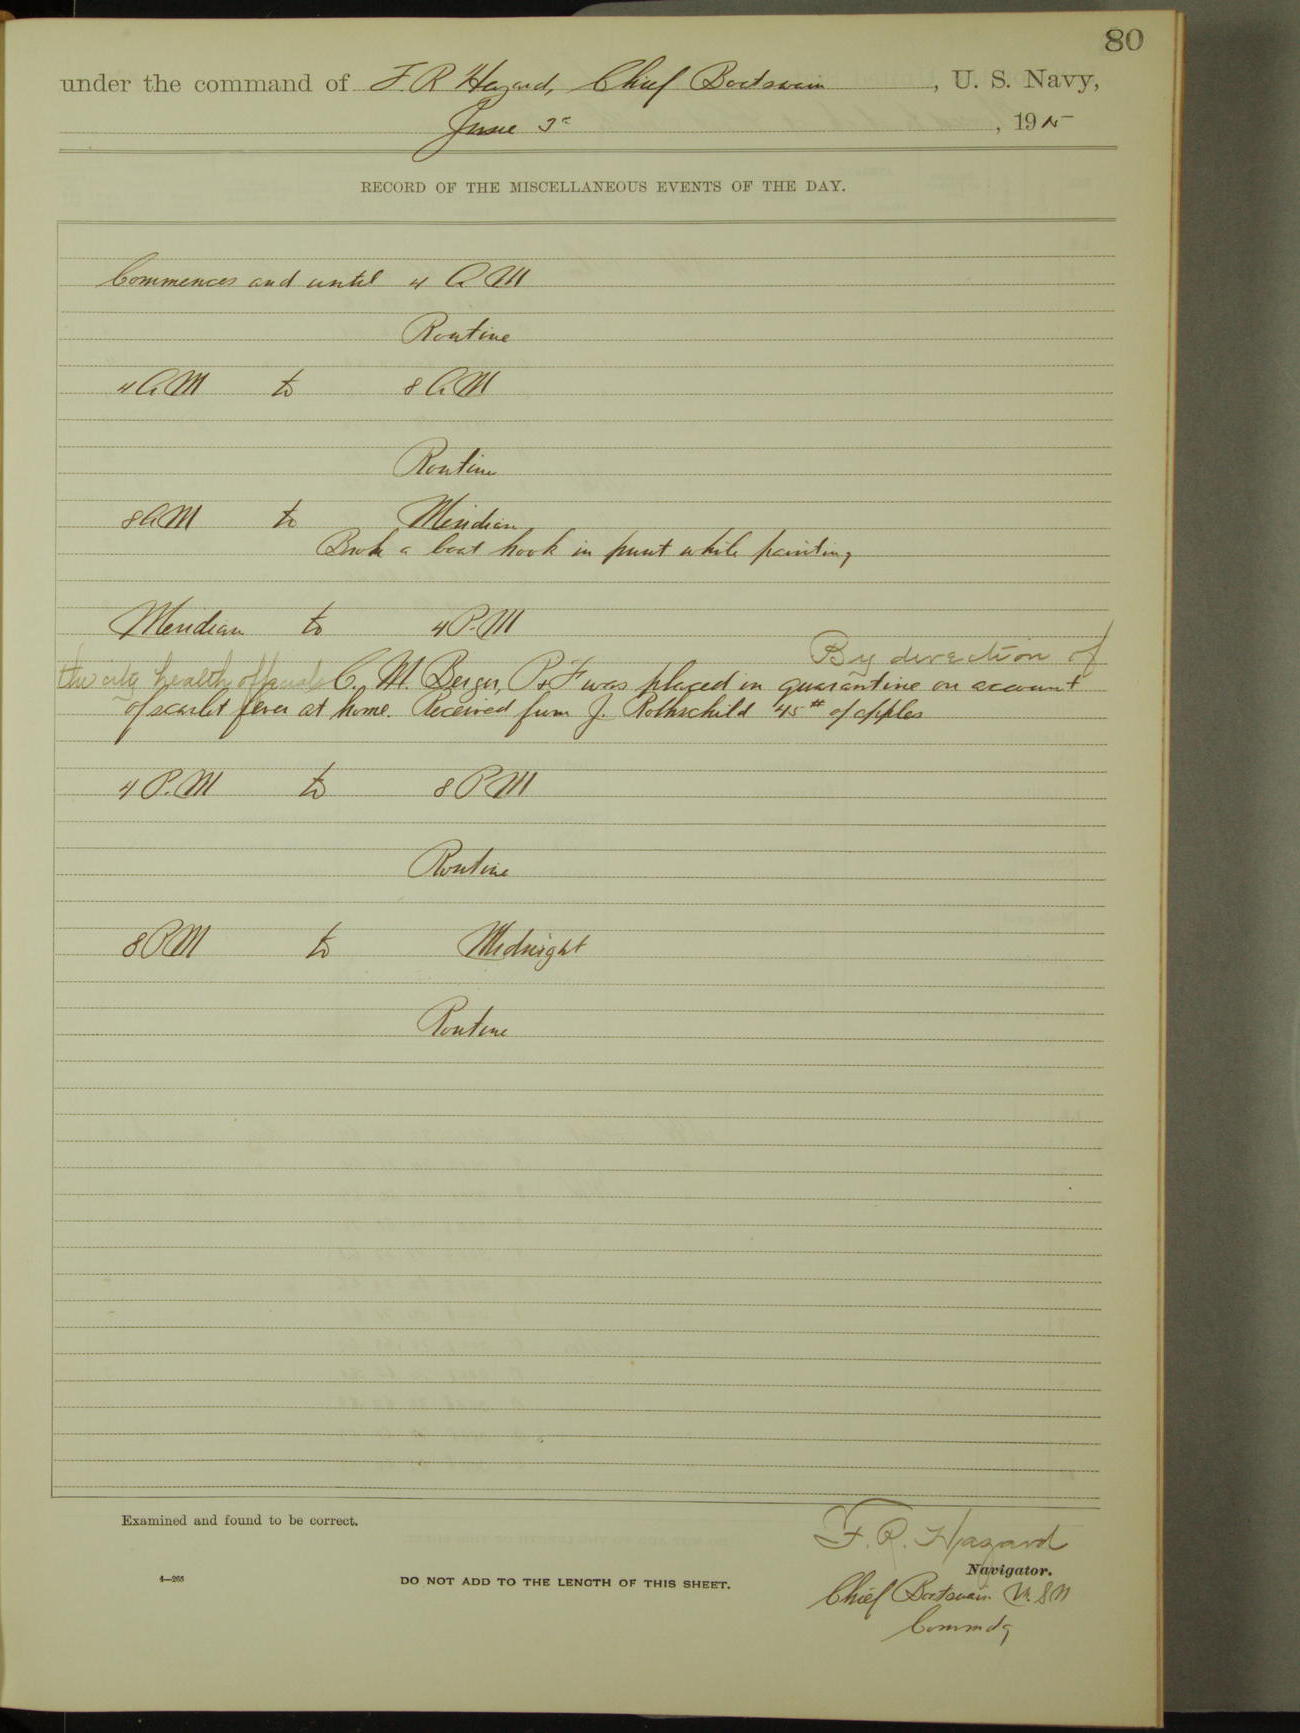 80
under the command of F. R Hazard, Chief Boatswain, U. S. Navy,
June 3d, 1915
RECORD OF THE MISCELLANEOUS EVENTS OF THE DAY.
Commences and until 4 A M
Routine
4 A M to 8 A M
Routine
8 A M to Meridian
Broke a boat hook in punt while painting
Meridian to 4 P. M
By direction of
the city health officials C. M. Berger, P.+F was placed in quarantine on account
of scarlet fever at home. Received from J. Rothschild 45# of apples
4 P. M to 8 P M
Routine
8 P M to Midnight
Routine
Examined and found to be correct.
F. R. Hazard
Navigator.
4—265
DO NOT ADD TO THE LENGTH OF THIS SHEET.
Chief Boatswain U. S N
Commdg